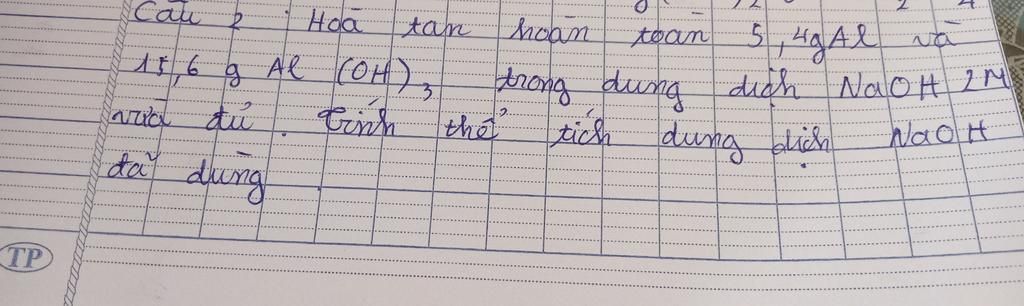 Câu 2 : Hoà tan hoàn toàn 5,4g Al và
15,6 g Al (OH)3 trong dung dịch NaOH 2M
vừa đủ. Tính thể tích dung dịch NaOH
đã dùng.
TP